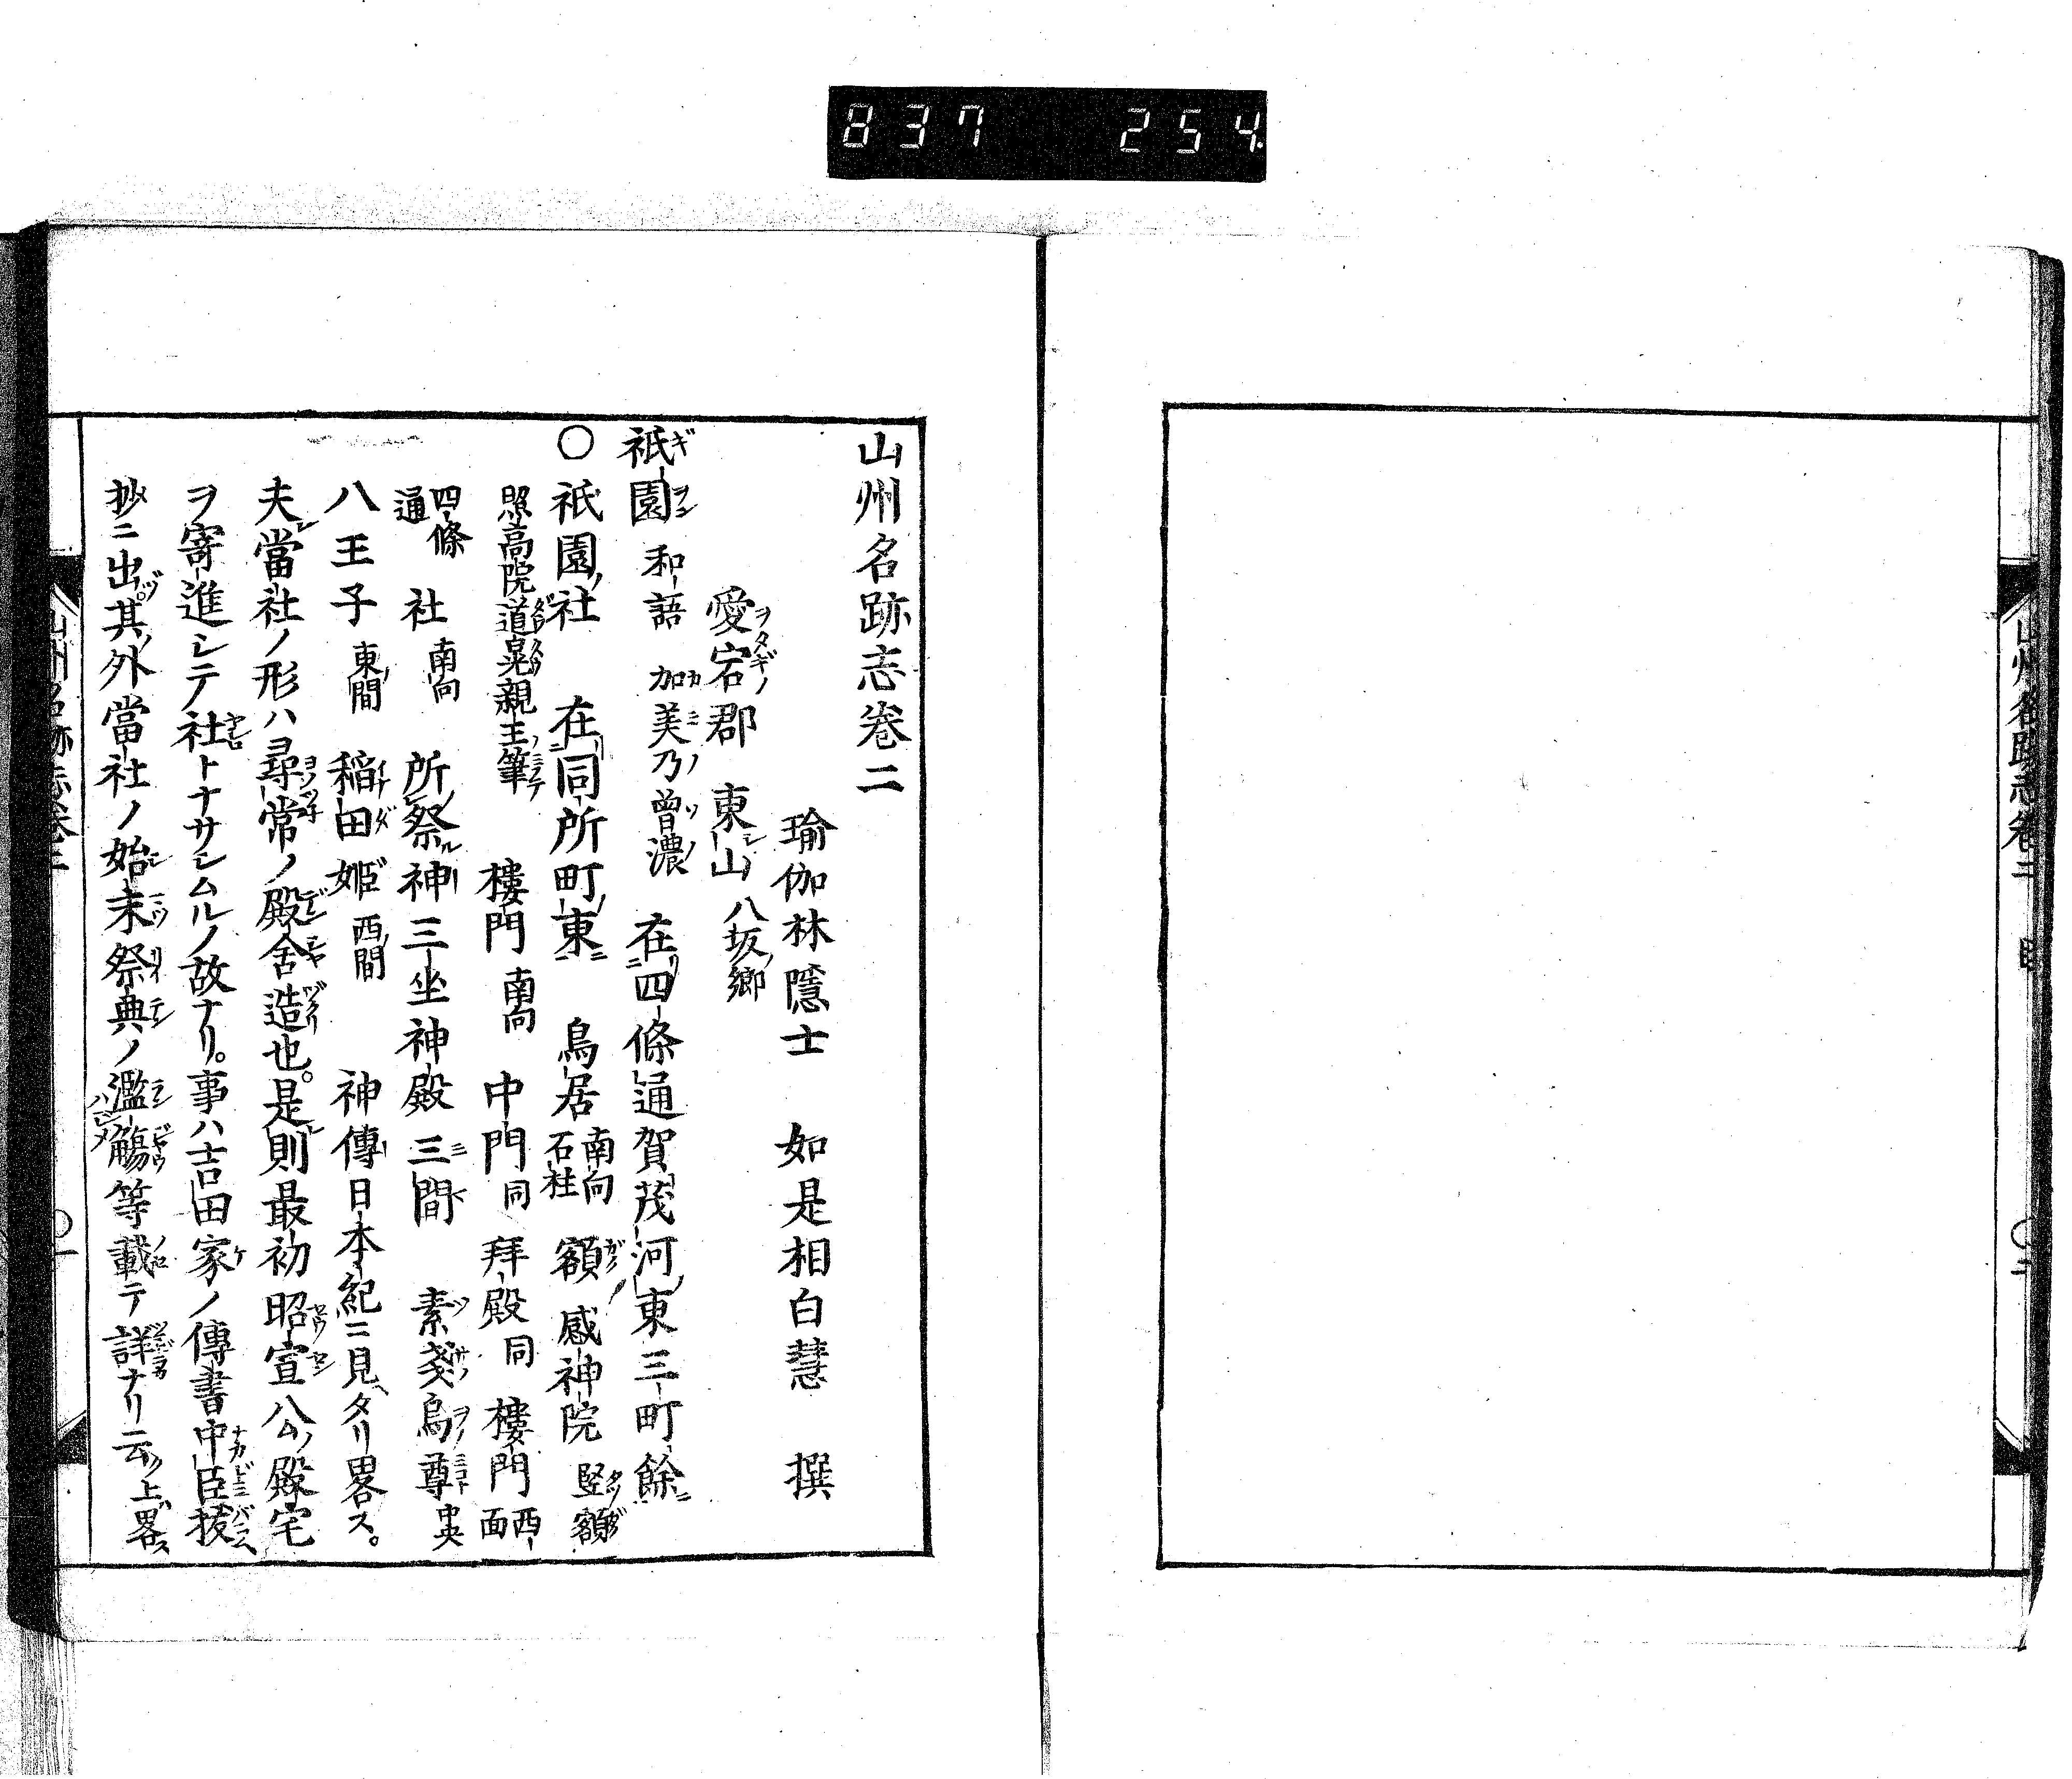 837 254
山州名跡志卷二 目 〇二
山州名跡志卷二
瑜伽林隱士 如是相白慧 撰
愛宕郡 東山 八坂郷
祇園 和語 加美乃曾濃 在四條通賀茂河東三町餘
〇祇園社 在同所町東 鳥居 南向石柱 額 感神院 竪額
照高院道晃親王筆 樓門 南向 中門 同 拜殿 同 樓門 西面
四條通 社 南向 所祭神三坐神殿三間 素戔烏尊 中央
八王子 東間 稲田姫 西間 神傳日本紀ニ見タリ畧ス。
夫當社ノ形ハ尋常ノ殿舍造也。是則最初昭宣公ノ殿宅
ヲ寄進シテ社トナサシムルノ故ナリ。事ハ吉田家ノ傳書中臣祓
抄ニ出。其外當社ノ始末祭典ノ濫觴等載テ詳ナリ云云上畧
山州名跡志卷二 〇一